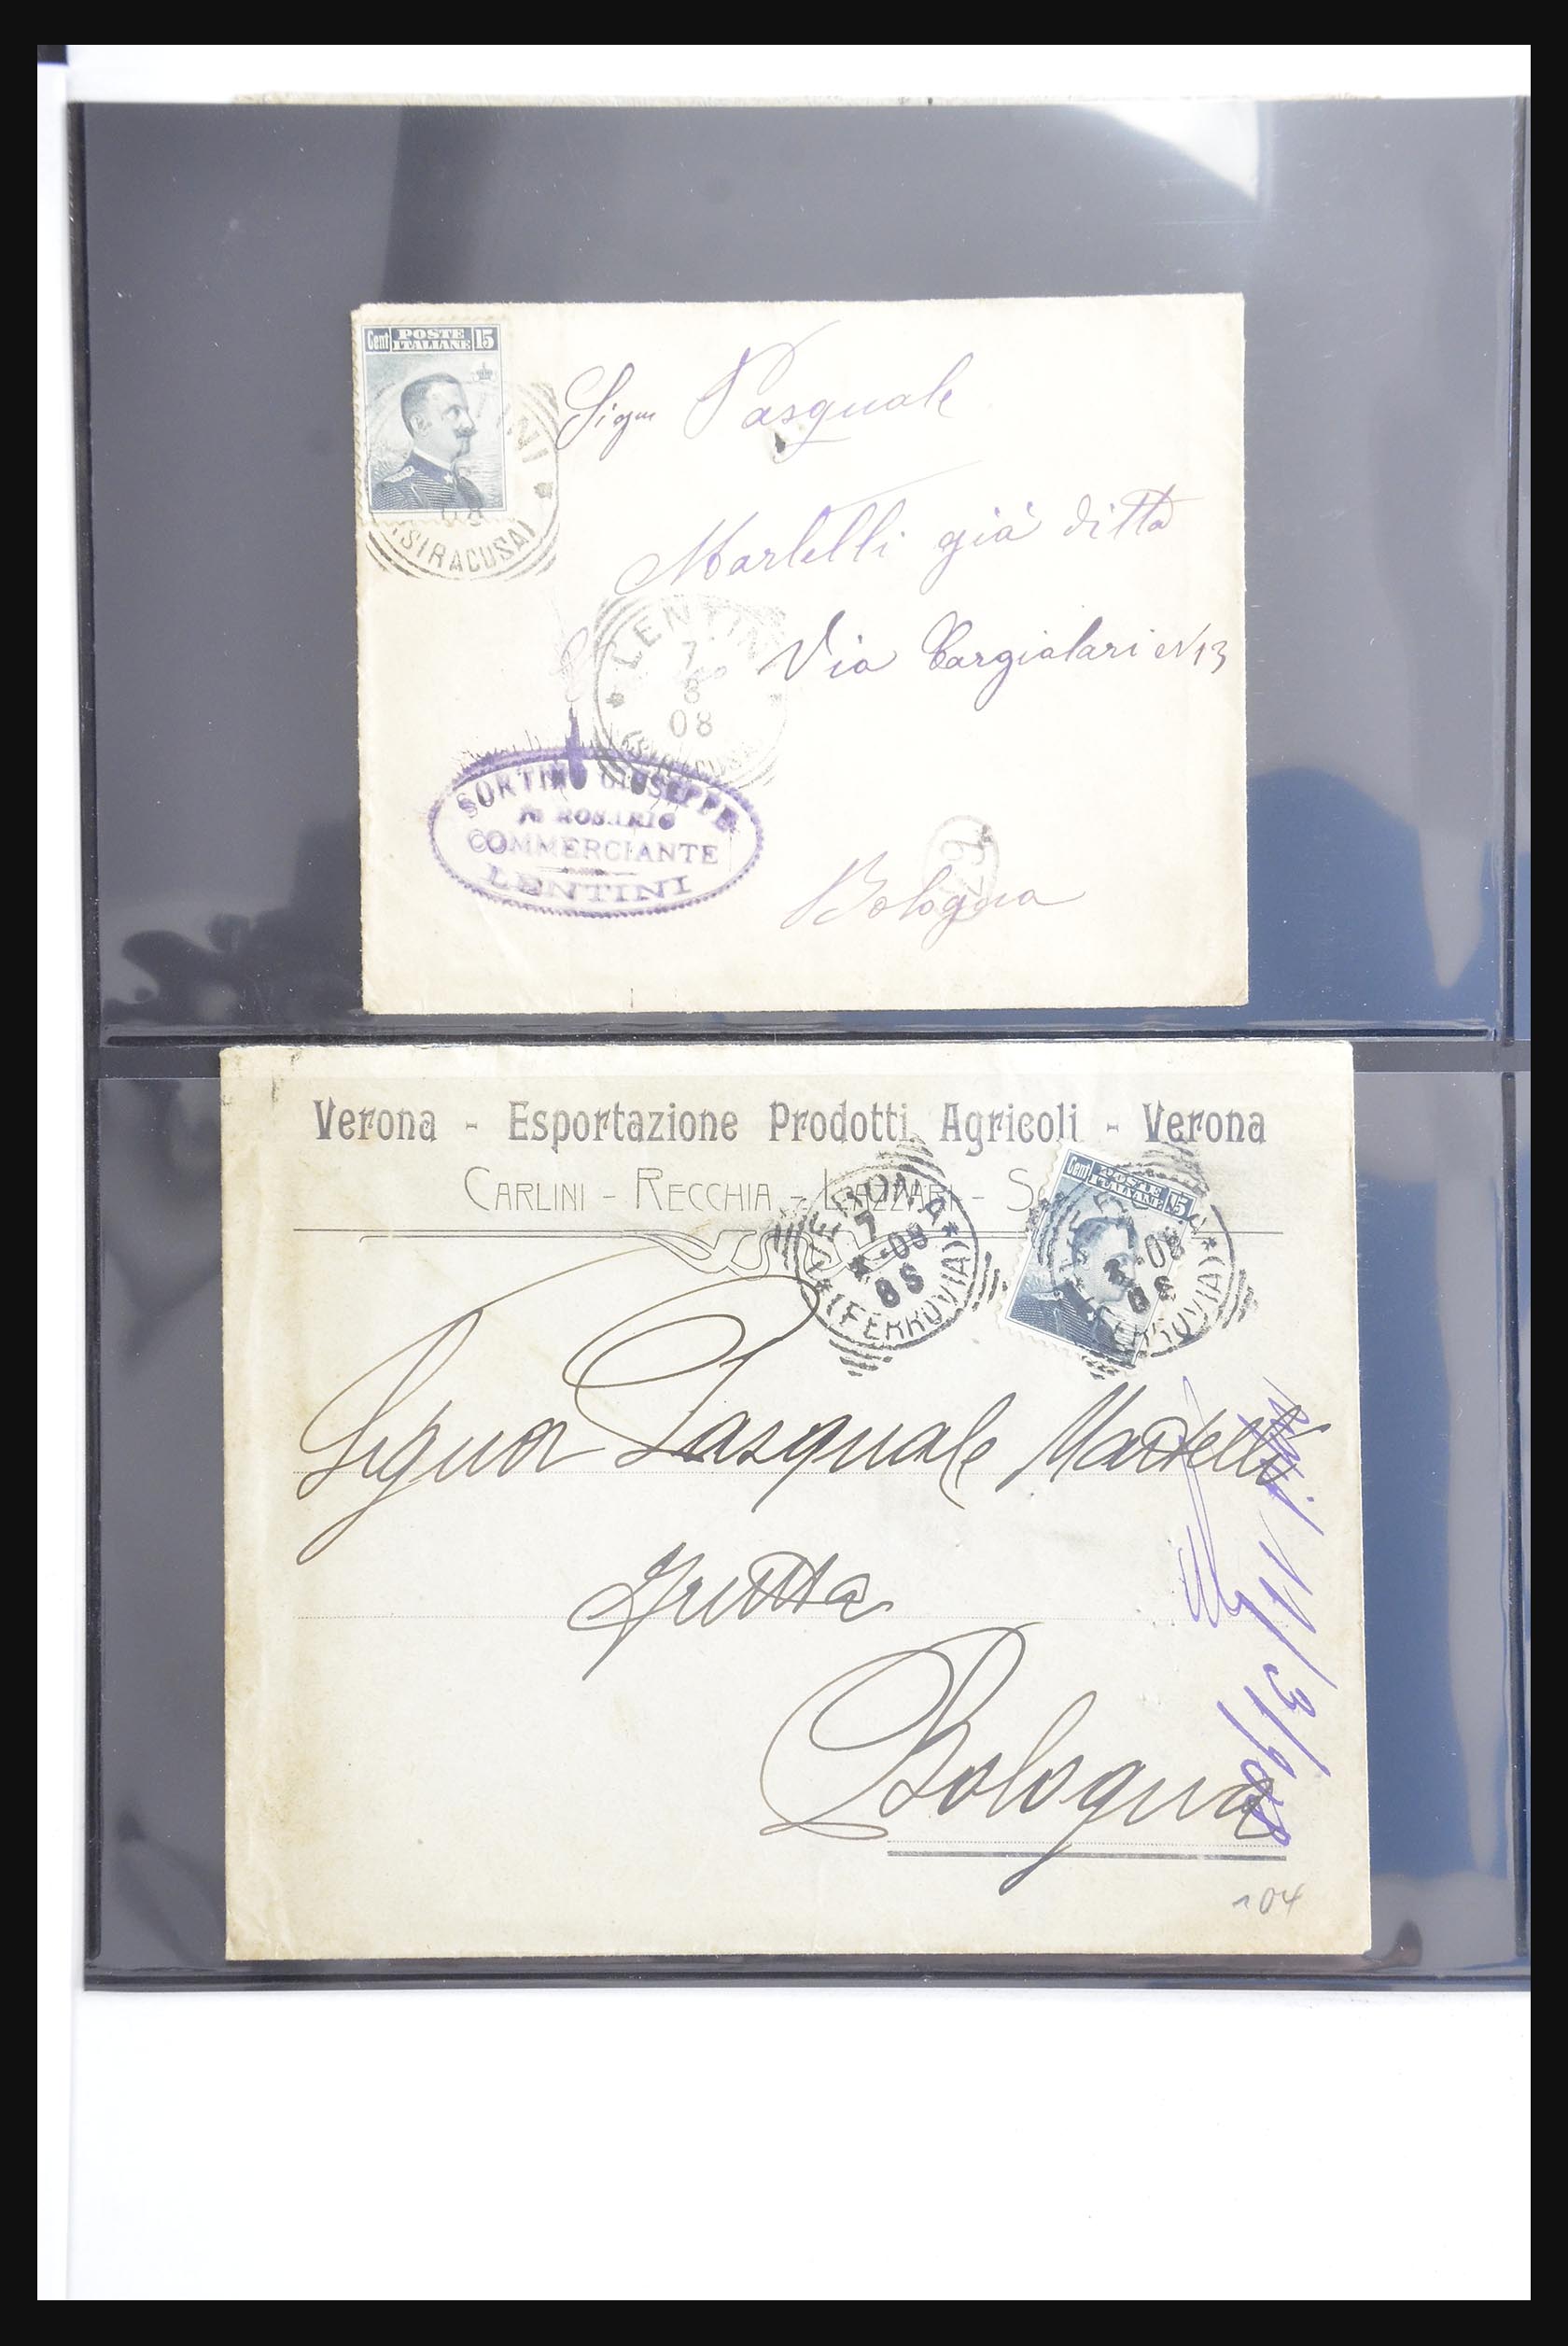 Cent POSTE ITALIANE 15
NI
08
(SIRACUSA)
Sigr Pasquale
Martelli già ditta
Via Cargialari N 13
LENTINI
7
8
08
(SIRACUSA)
SORTINO GIUSEPPE
ROSARIO
COMMERCIANTE
LENTINI
Bologna
Verona - Esportazione Prodotti Agricoli - Verona
CARLINI - RECCHIA - LAZZARI - S
VERONA
7
08
8S
(FERROVIA)
Cent POSTE ITALIANE 15
08
(FERROVIA)
Signor Pasquale Martelli
Frutta
Bologna
11/3/908
104